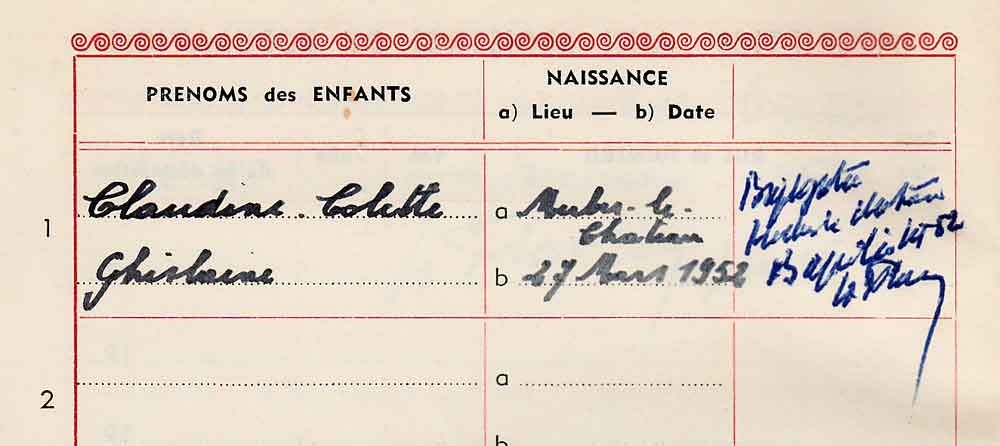 PRENOMS des ENFANTS
NAISSANCE
a) Lieu — b) Date
1
Claudine. Colette
Ghislaine
a Merbes-le-
Chateau
b 27 Mars 1952
2
a
b